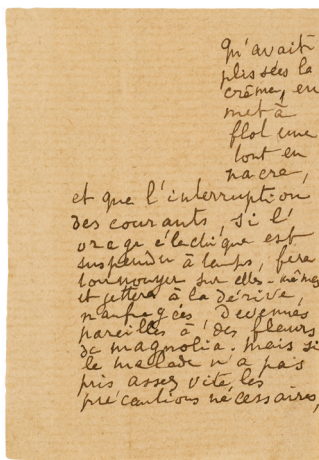 qu'avait
plissées la
crème, en
met à
flot une
tout en
nacre,
et que l'interruption
des courants, si l'
orage électrique est
suspendu à temps, fera
tournoyer sur elles-mêmes
et jettera à la dérive,
naufragées, devenues
pareilles à des fleurs
de magnolia. mais si
le malade n'a pas
pris assez vite les
précautions nécessaires,